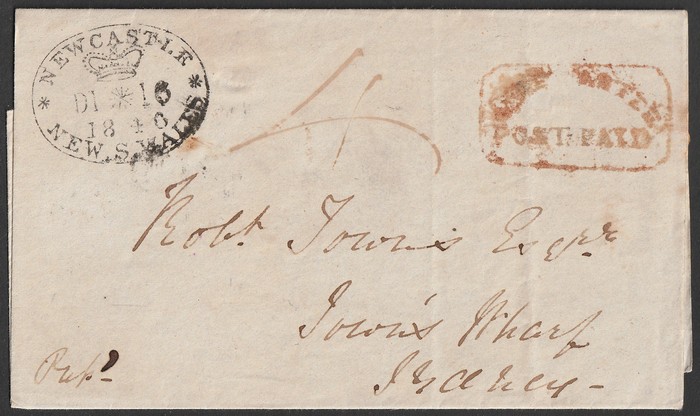 * NEWCASTLE *
DI * 16
18 4 6
NEW. S. WALES
4
POST PAID
Robt Towns Esqr
Town's Wharf
Sydney -